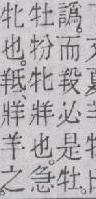 譌。而羖必是牡。
牡羒牝牂也。急
牝也。羝牂羊之